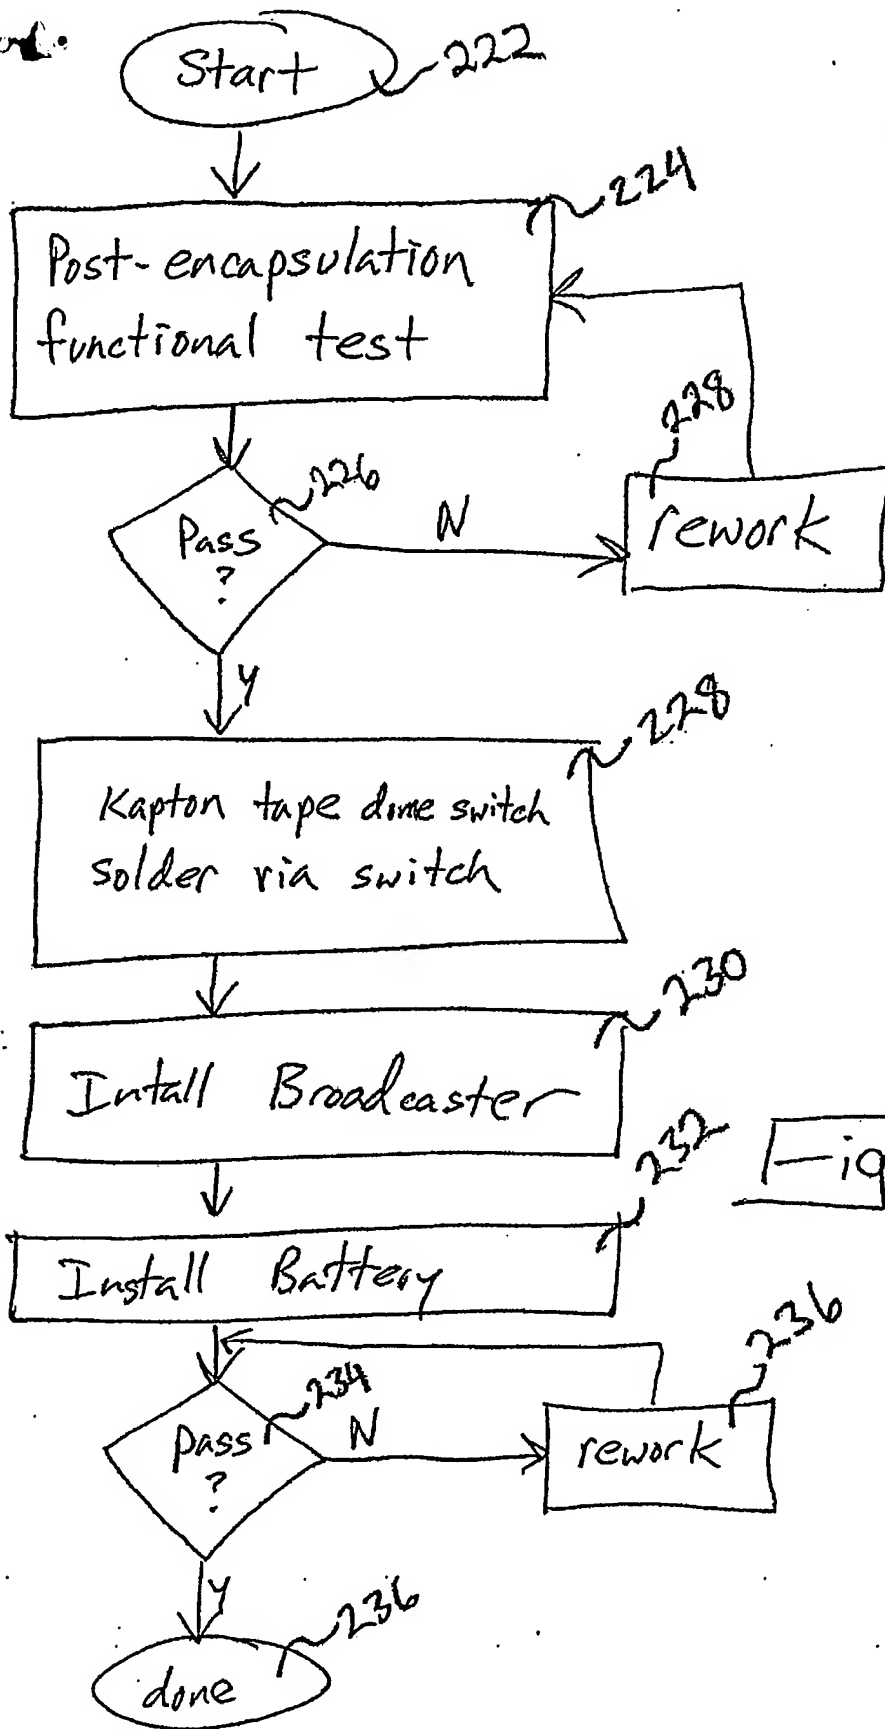 Start
222
224
Post-encapsulation
functional test
226
Pass
?
N
228
rework
Y
228
Kapton tape dome switch
solder via switch
230
Intall Broadcaster
232
Fig
Install Battery
234
Pass
?
N
236
rework
Y
236
done